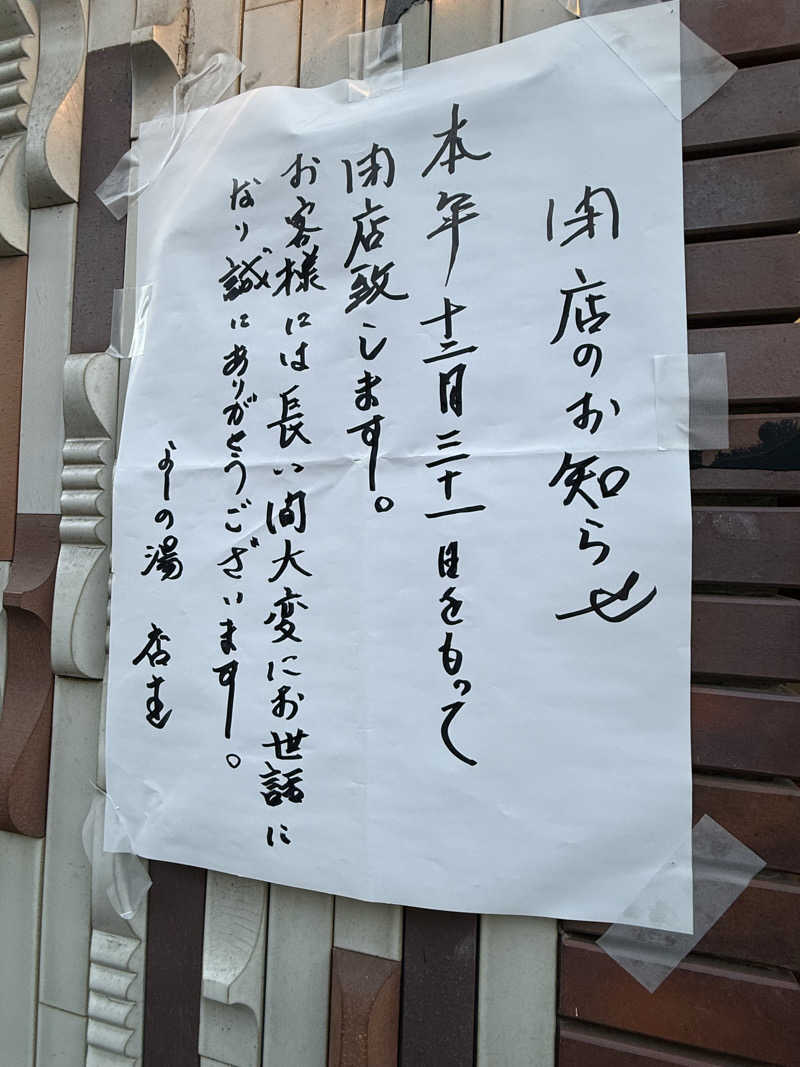 閉店のお知らせ
本年十二月三十一日をもって
閉店致します。
お客様には長い間大変にお世話に
なり誠にありがとうございます。
よしの湯 店主